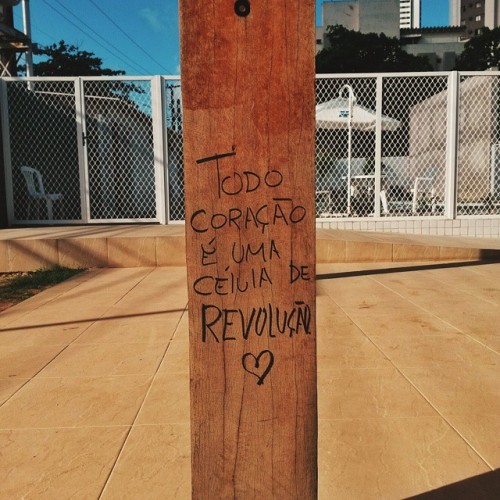 TODO
CORAÇÃO
É UMA
CÉLULA DE
REVOLUÇÃO